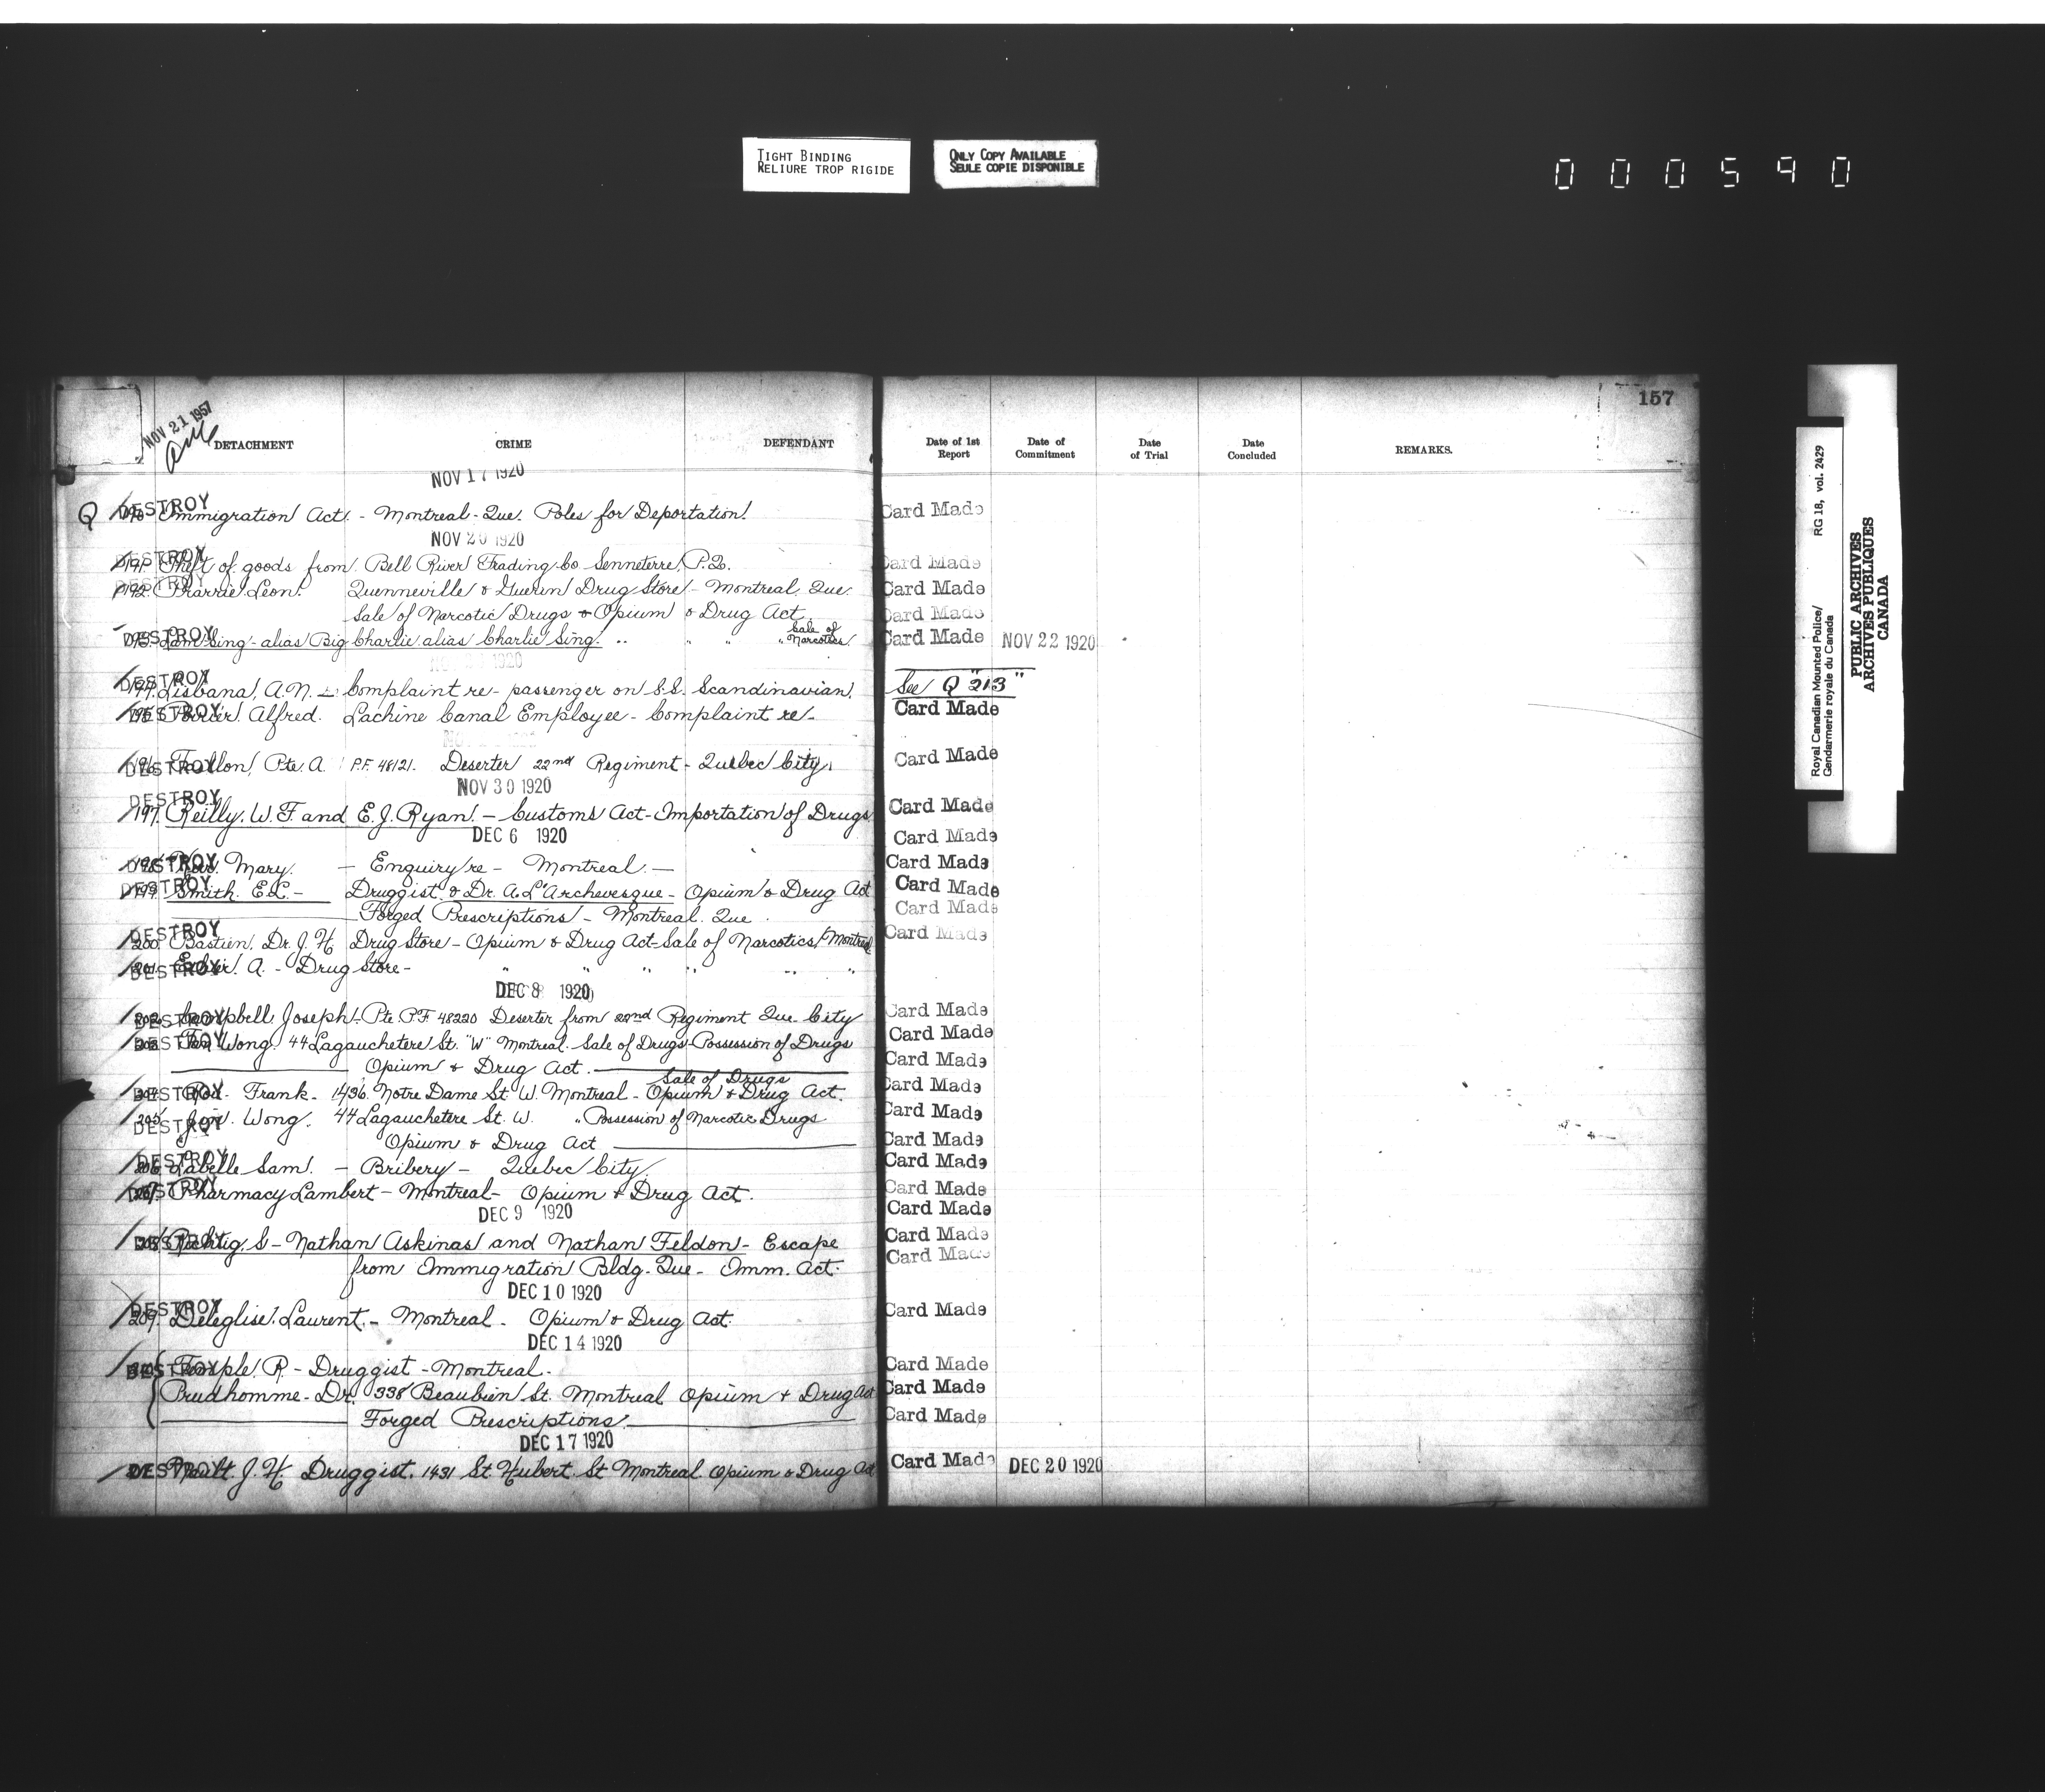 TIGHT BINDING
RELIURE TROP RIGIDE
ONLY COPY AVAILABLE
SEULE COPIE DISPONIBLE
000590
NOV 21 1957
157
DETACHMENT CRIME DEFENDANT Date of 1st Report Date of Commitment Date of Trial Date Concluded REMARKS.
NOV 17 1920
DESTROY
Q 190 Immigration Act. - Montreal - Que. Poles for Deportation. Card Made
NOV 20 1920
DESTROY
191. Theft of goods from Bell River Trading Co. Senneterre, P.Q. Card Made
DESTROY
192. Leon. Quenneville & Guerin Drug Store - Montreal, Que. Card Made
Sale of Narcotic Drugs & Opium & Drug Act. Card Made
DESTROY
193. Lam Sing - alias Big Charlie alias Charlie Sing. " " " " Sale of Narcotics. Card Made NOV 22 1920
1920
DESTROY
194. Lisbana, A.N. - Complaint re - passenger on S.S. Scandinavian. See Q "213"
DESTROY
195 Alfred. Lachine Canal Employee - Complaint re - Card Made
DESTROY
196. Pte. A. P.F. 48121. Deserter 22nd Regiment - Quebec City. Card Made
NOV 30 1920
DESTROY
197. Reilly. W.F. and E.J. Ryan. - Customs Act - Importation of Drugs. Card Made
DEC 6 1920 Card Made
DESTROY
198. Mary. - Enquiry re - Montreal. - Card Made
DESTROY
199. Smith. E.L. - Druggist. & Dr. A. L'Archevesque - Opium & Drug Act Card Made
Forged Prescriptions - Montreal. Que. Card Made
DESTROY
200. Bastien, Dr. J.H. Drug Store - Opium & Drug Act - Sale of Narcotics Montreal. Card Made
DESTROY
201. A. - Drug Store - " " " " " "
DEC 8 1920
DESTROY
202. Campbell, Joseph. Pte. P.F. 48220 Deserter from 22nd Regiment Que. City Card Made
DESTROY
203. Wong. 44 Lagauchetere St. "W" Montreal. Sale of Drugs - Possession of Drugs Card Made
Opium & Drug Act. Card Made
Sale of Drugs
DESTROY
204. Frank - 1436. Notre Dame St. W. Montreal - Opium & Drug Act. Card Made
DESTROY
205. Joe. Wong. 44 Lagauchetere St. W. " Possession of Narcotic Drugs Card Made
Opium & Drug Act Card Made
DESTROY
206. Labelle Sam. - Bribery - Quebec City. Card Made
DESTROY
207. Pharmacy Lambert - Montreal - Opium & Drug Act. Card Made
DEC 9 1920 Card Made
DESTROY
208. S - Nathan Askinas and Nathan Feldon - Escape Card Made
from Immigration Bldg. Que - Imm. Act. Card Made
DEC 10 1920
DESTROY
209. Deleglise. Laurent. - Montreal - Opium & Drug Act. Card Made
DEC 14 1920
DESTROY
210. Temple. R - Druggist - Montreal. Card Made
Prudhomme - Dr. 338 Beaubien St. Montreal Opium & Drug Act Card Made
Forged Prescriptions. Card Made
DEC 17 1920
DESTROY
J.H. Druggist. 1431 St. Hubert. St Montreal. Opium & Drug Act Card Made DEC 20 1920
Royal Canadian Mounted Police/ RG 18, vol. 2429
Gendarmerie royale du Canada
PUBLIC ARCHIVES
ARCHIVES PUBLIQUES
CANADA